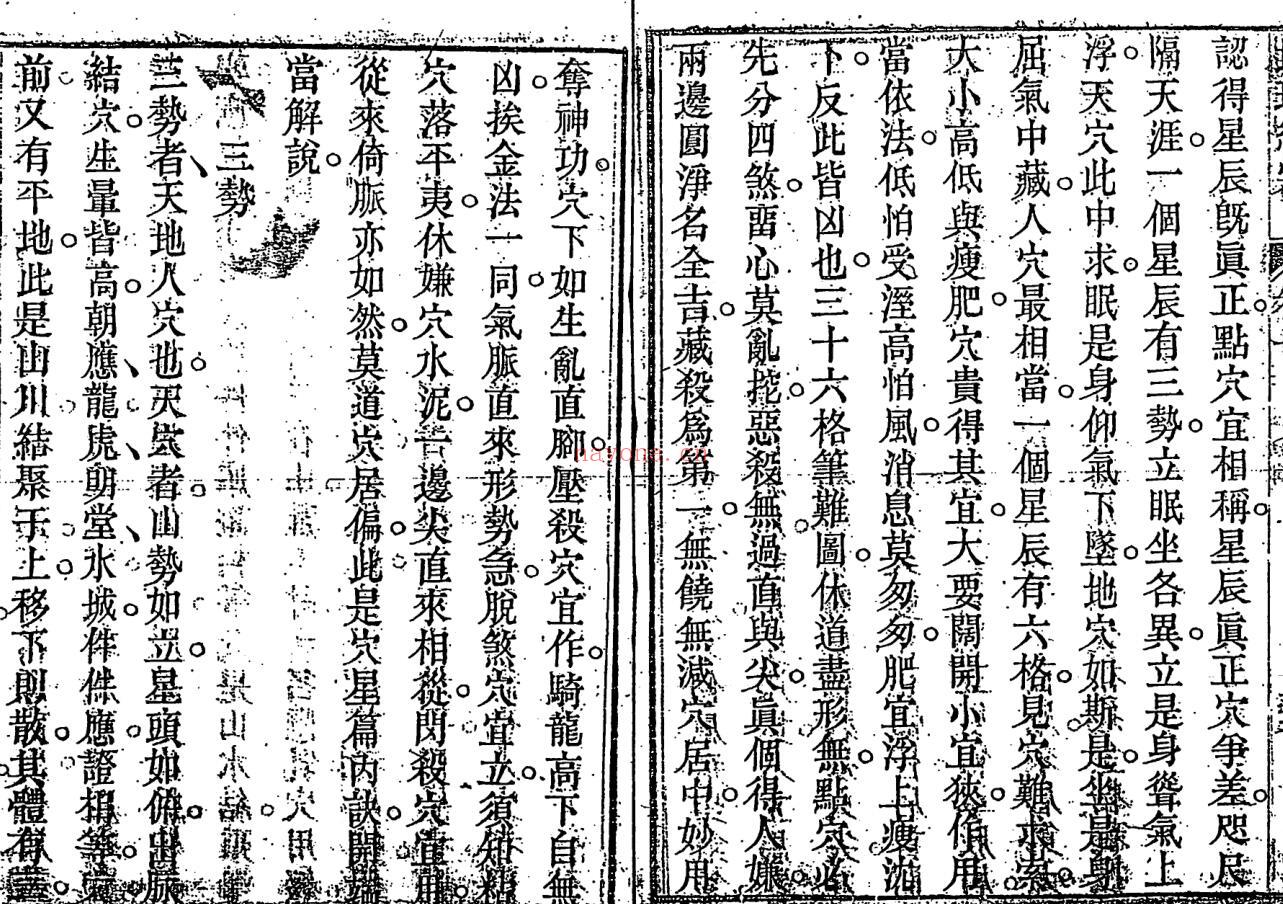 認得星辰旣眞正點穴宜相稱星辰眞正穴爭差咫尺
隔天涯一個星辰有三勢立眠坐各異立是身聳氣上
浮天穴此中求眠是身仰氣下墜地穴如斯是坐是身
屈氣中藏人穴最相當一個星辰有六格見穴難求索
大小高低與瘦肥穴貴得其宜大要闊開小宜狹作用
當依法低怕受溼高怕風消息莫匆匆肥宜浮上瘦沈
下反此皆凶也三十六格筆難圖休道盡形無點穴必
先分四煞畱心莫亂挖惡殺無過直與尖眞個得人嫌
兩邊圓淨名全吉藏殺爲第一無饒無減穴居中妙用
奪神功穴下如生亂直腳壓殺穴宜作騎龍高下自無
凶挨金法一同氣脈直來形勢急脫煞穴宜立須知
穴落平夷休嫌穴水泥一邊尖直來相從閃殺穴宜用
從來倚脈亦如然莫道穴居偏此是穴星篇內訣開端
當解說
三勢
三勢者天地人穴也天穴者山勢如立星頭如俯出脈
結穴生暈皆高朝應龍虎明堂水城件件應證相等
前又有平地此是山川結聚于上移下則散其體有
nayona.cn